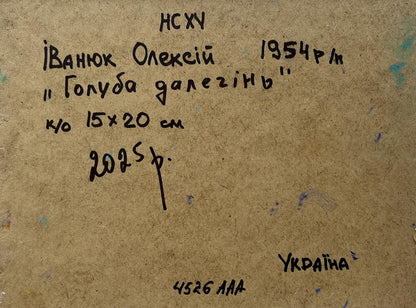 НСХУ
Іванюк Олексій 1954 р/н
„Голуба далечінь"
к/о 15×20 см
2025 р.
Україна
4526 ААА